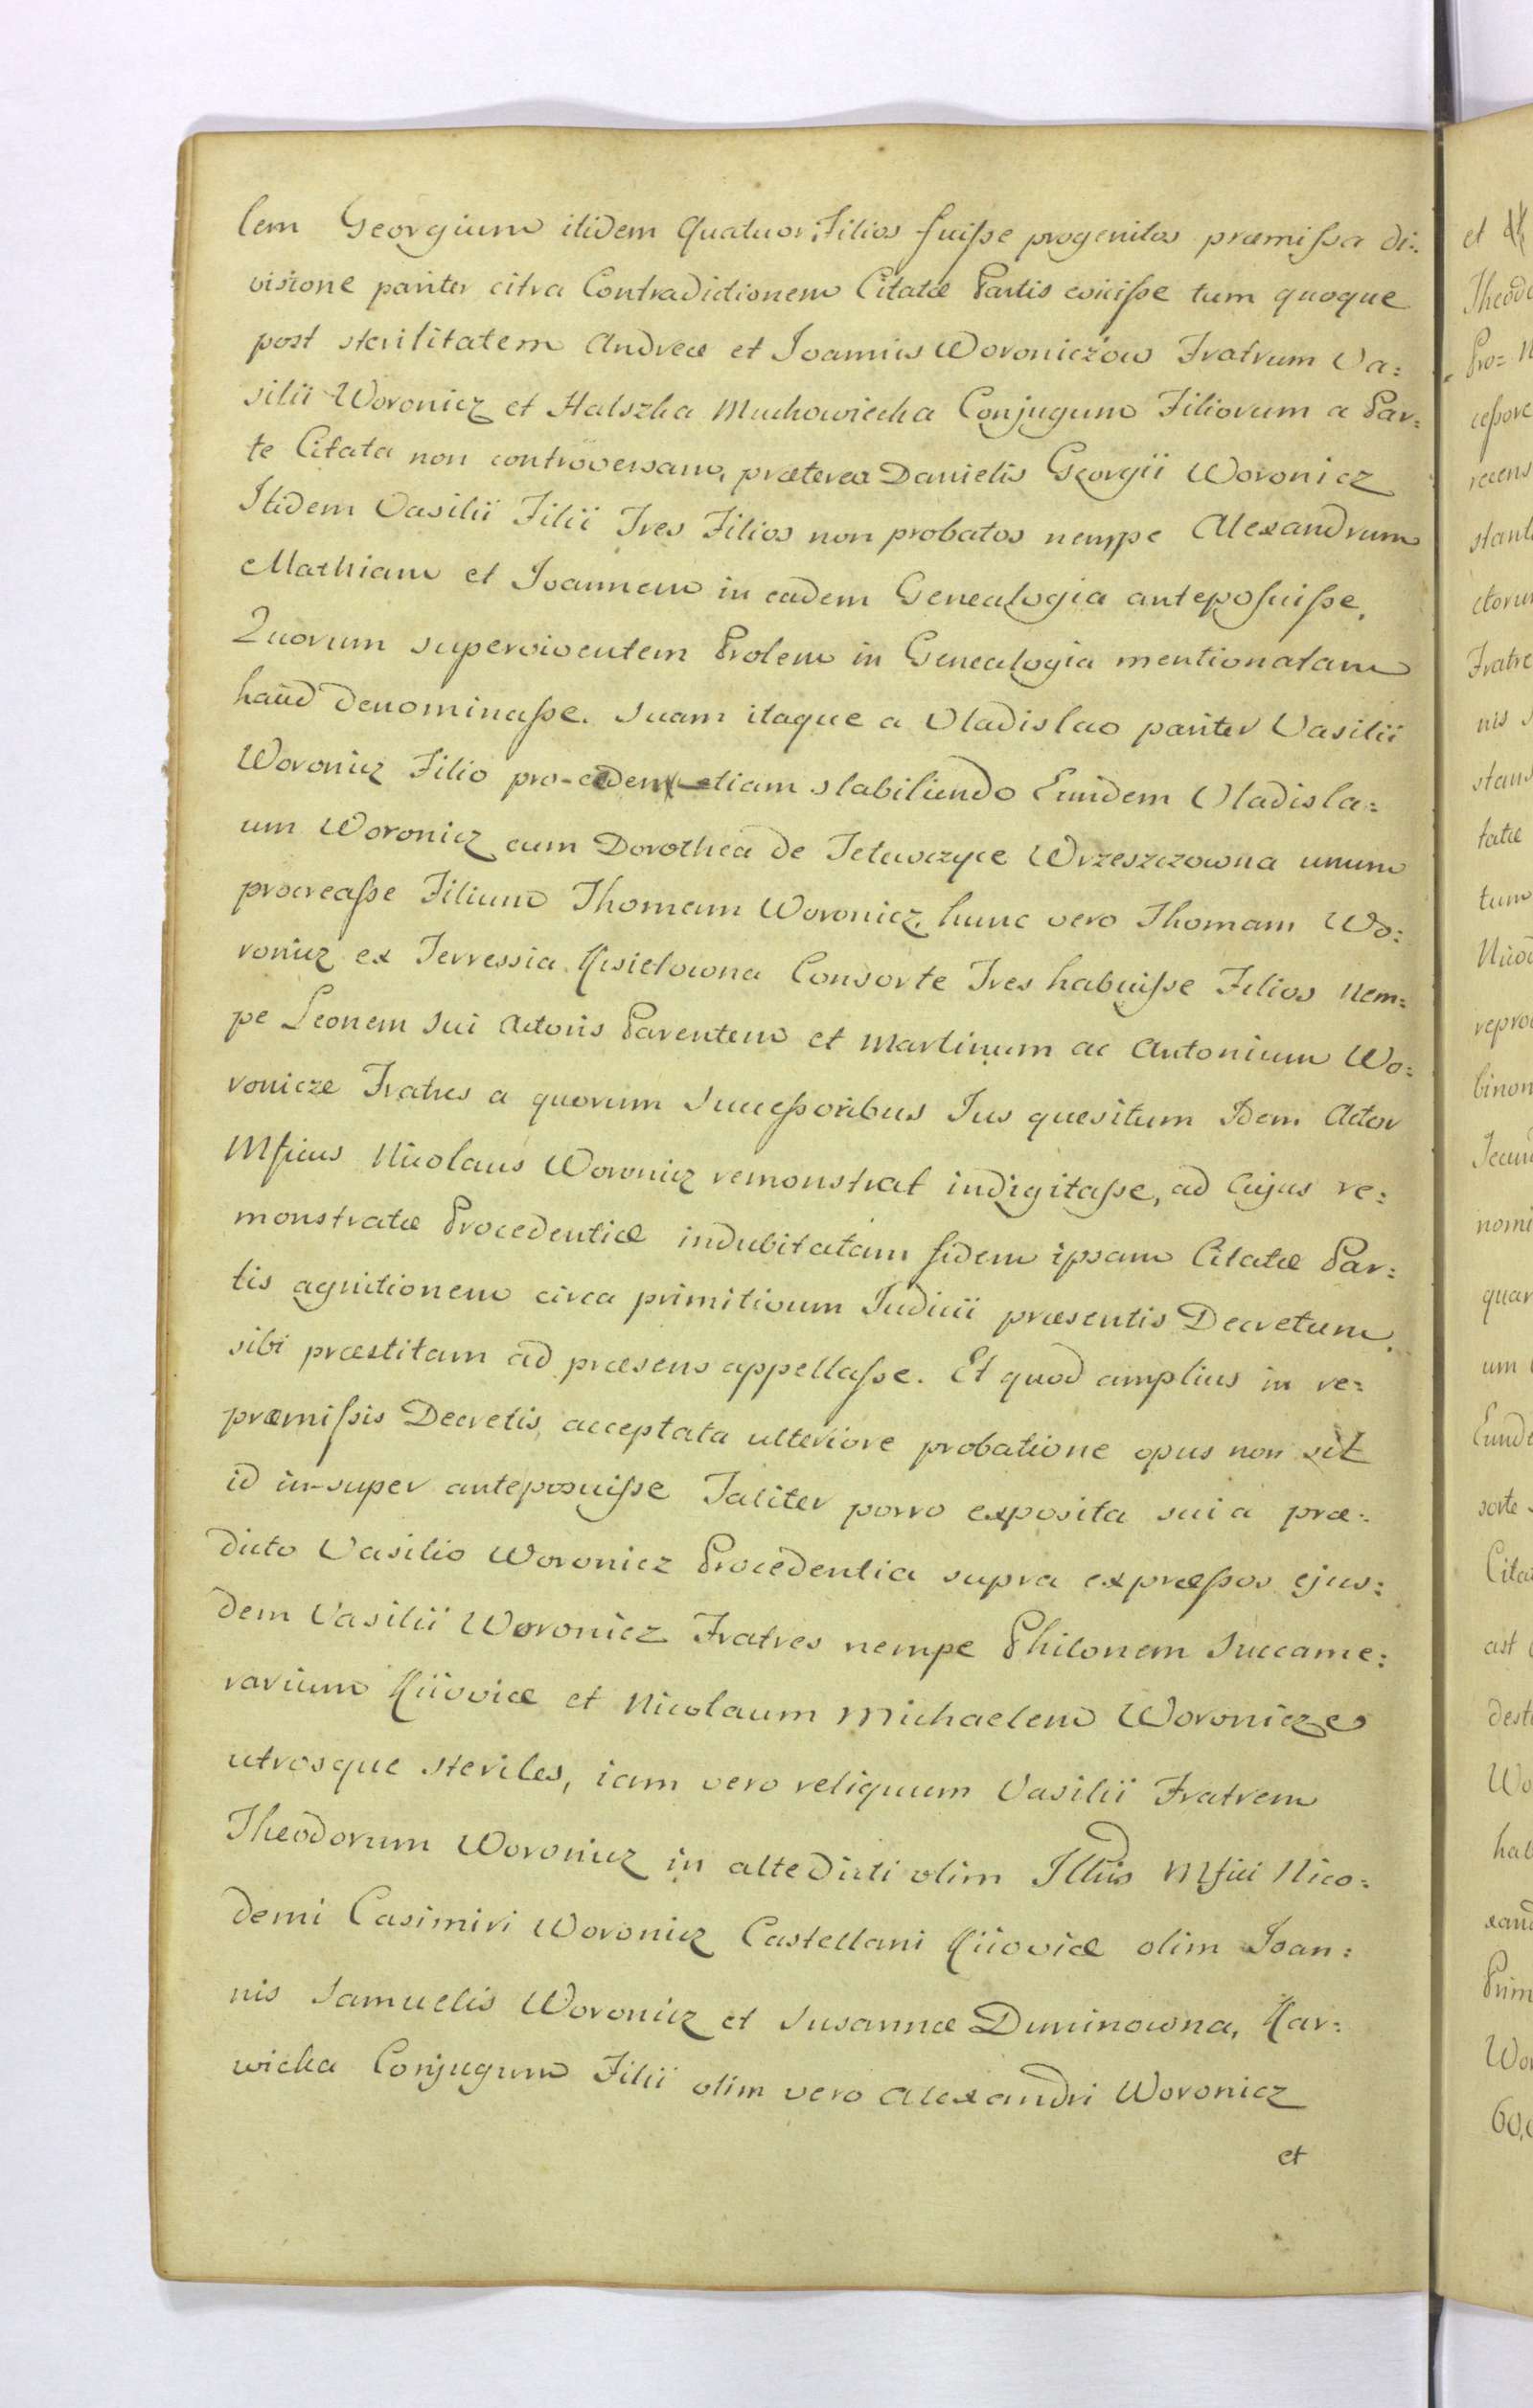 lem Georgium itidem Quatuor Filios fuisse progenitos præmissa di:
visione pariter citra Contradictionem Citatæ Partis evicisse tum quoque
post sterilitatem Andreæ et Joannis Woroniczow Fratrum Va:
silii Woronicz et Halszka Muchowiecka Conjugum Filiorum a Par:
te Citata non controversam, præterea Danielis Georgii Woronicz
Itidem Vasilii Filii Tres Filios non probatos nempe Alexandrum
Mathiam et Joannem in eadem Genealogia anteposuisse,
Quorum superviventem Prolem in Genealogia mentionatam
haud denominasse. Suam itaque a Vladislao pariter Vasilii
Woronicz Filio stabiliendo Eundem Vladisla:
um Woronicz cum Dorothea de Wrzeszczowna unum
procreasse Filium Thomam Woronicz, hunc vero Thomam Wo:
ronicz ex Terressia Kisielowna Consorte Tres habuisse Filios Nem:
pe Leonem sui Actoris Parentem et Martinum ac Antonium Wo:
ronicze Fratres a quorum Successoribus Jus quesitum Idem Actor
Mficus Nicolaus Woronicz remonstrat indigitasse, ad Cujus re:
monstratæ Procedentiæ indubitatam fidem ipsam Citatæ Par:
tis agnitionem circa primitivum Judicii præsentis Decretum,
sibi præstitam ad præsens appellasse. Et quod amplius in re:
præmissis Decretis, acceptata ulteriore probatione opus non sit
id in-super anteposuisse Taliter porro exposita sui a præ:
dicto Vasilio Woronicz Procedentia supra expræssos ejus:
dem Vasilii Woronicz Fratres nempe Philonem Succame:
rarium Kiioviæ et Nicolaum Michaelem Woronicze
utrosque steriles, iam vero reliquum Vasilii Fratrem
Theodorum Woronicz in alte dicti olim Illris Mfici Nico:
demi Casimiri Woronicz Castellani Kiioviæ olim Joan:
nis Samuelis Woronicz et Susannæ Duninowna, Kar:
wicka Conjugum Filii olim vero Alexandri Woronicz
et